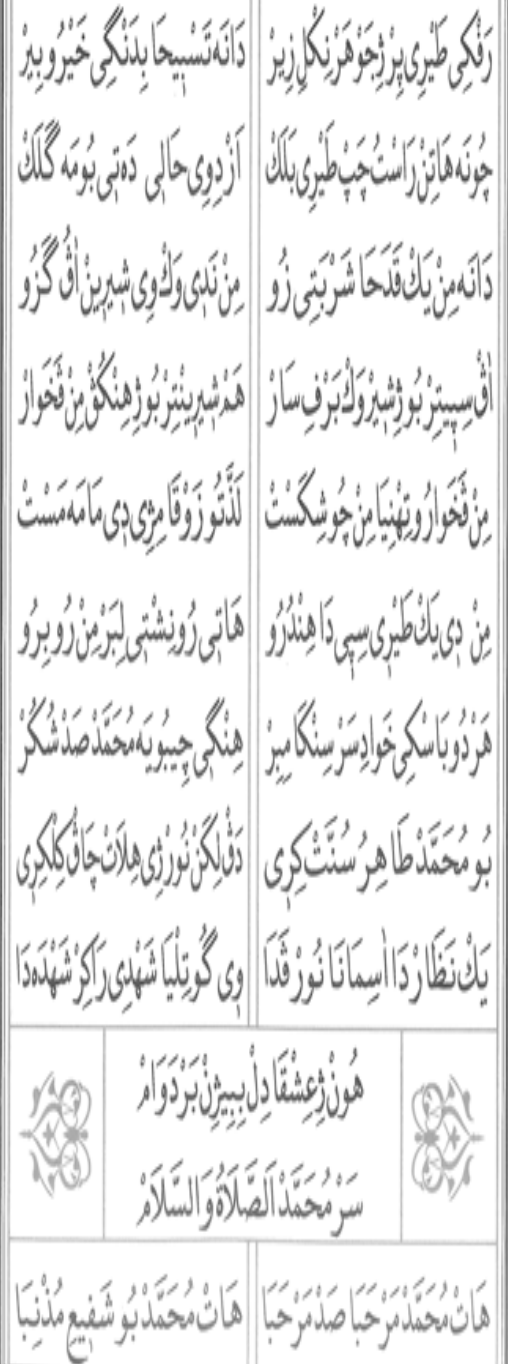 رَفْكِى طَيْرِى پِرْژِجَوْهَرْ نِكُلْ زِيرْ دَانَه تَسْبِيحَا بِدَنْگِى خَيْرُو بِيرْ
چُونَه هَاتِنْ رَاسْتُ چَپْ طَيْرِى بَلَكْ اَزْ دِوِى حَالِى دَه تِى بُومَه گَلَكْ
دَانَه مِنْ يَكْ قَدَحَا شَرْبَتِى زُو مِنْ نَدِى وَكْ وِى شِيرِينْ اٰڤُ گَزُو
اٰڤْ سِپِيتِرْ بُو ژِشِيرْ وَكْ بَرْفِ سَارْ هَمْ شِيرِينْتِرْ بُو ژِهِنْگُڤْ مِنْ ڤَخَوارْ
مِنْ ڤَخَوارُ و تِهْنِيَا مِنْ چُو شِكَسْتْ لَذَّتُو زَوْقَا مِژِى دِى مَامَه مَسْتْ
مِنْ دِى يَكْ طَيْرِى سِپِى دَا هِنْدُرُو هَاتِى رُونِشْتِى لِبَرْ مِنْ رُو بِرُو
هَرْدُو بَاسْكِى خَوادِسَرْ سِنْگَا مِبِرْ هِنْگِى چِيبُويَه مُحَمَّدْ صَدْ شُكُرْ
بُو مُحَمَّدْ طَاهِرُ سُنَّتْ كِرِى دَڤْ لِكَنْ نُورْ ژِى هِلَاتْ چَاڤْ كِلْكِرِى
يَكْ نَظَارْ دَا اٰسِمَانَا نُورْ ڤَدَا وِى گُوتِلْيَا شَهْدِى رَاكِرْ شَهْدَه دَا
هُونْ ژِعِشْقَا دِلْ بِبِيژِنْ بَرْدَوَامْ
سَرْ مُحَمَّدْ اَلصَّلَاةُ وَالسَّلَامْ
هَاتْ مُحَمَّدْ مَرْحَبَا صَدْ مَرْحَبَا هَاتْ مُحَمَّدْ بُو شَفِيعِ مُذْنِبَا